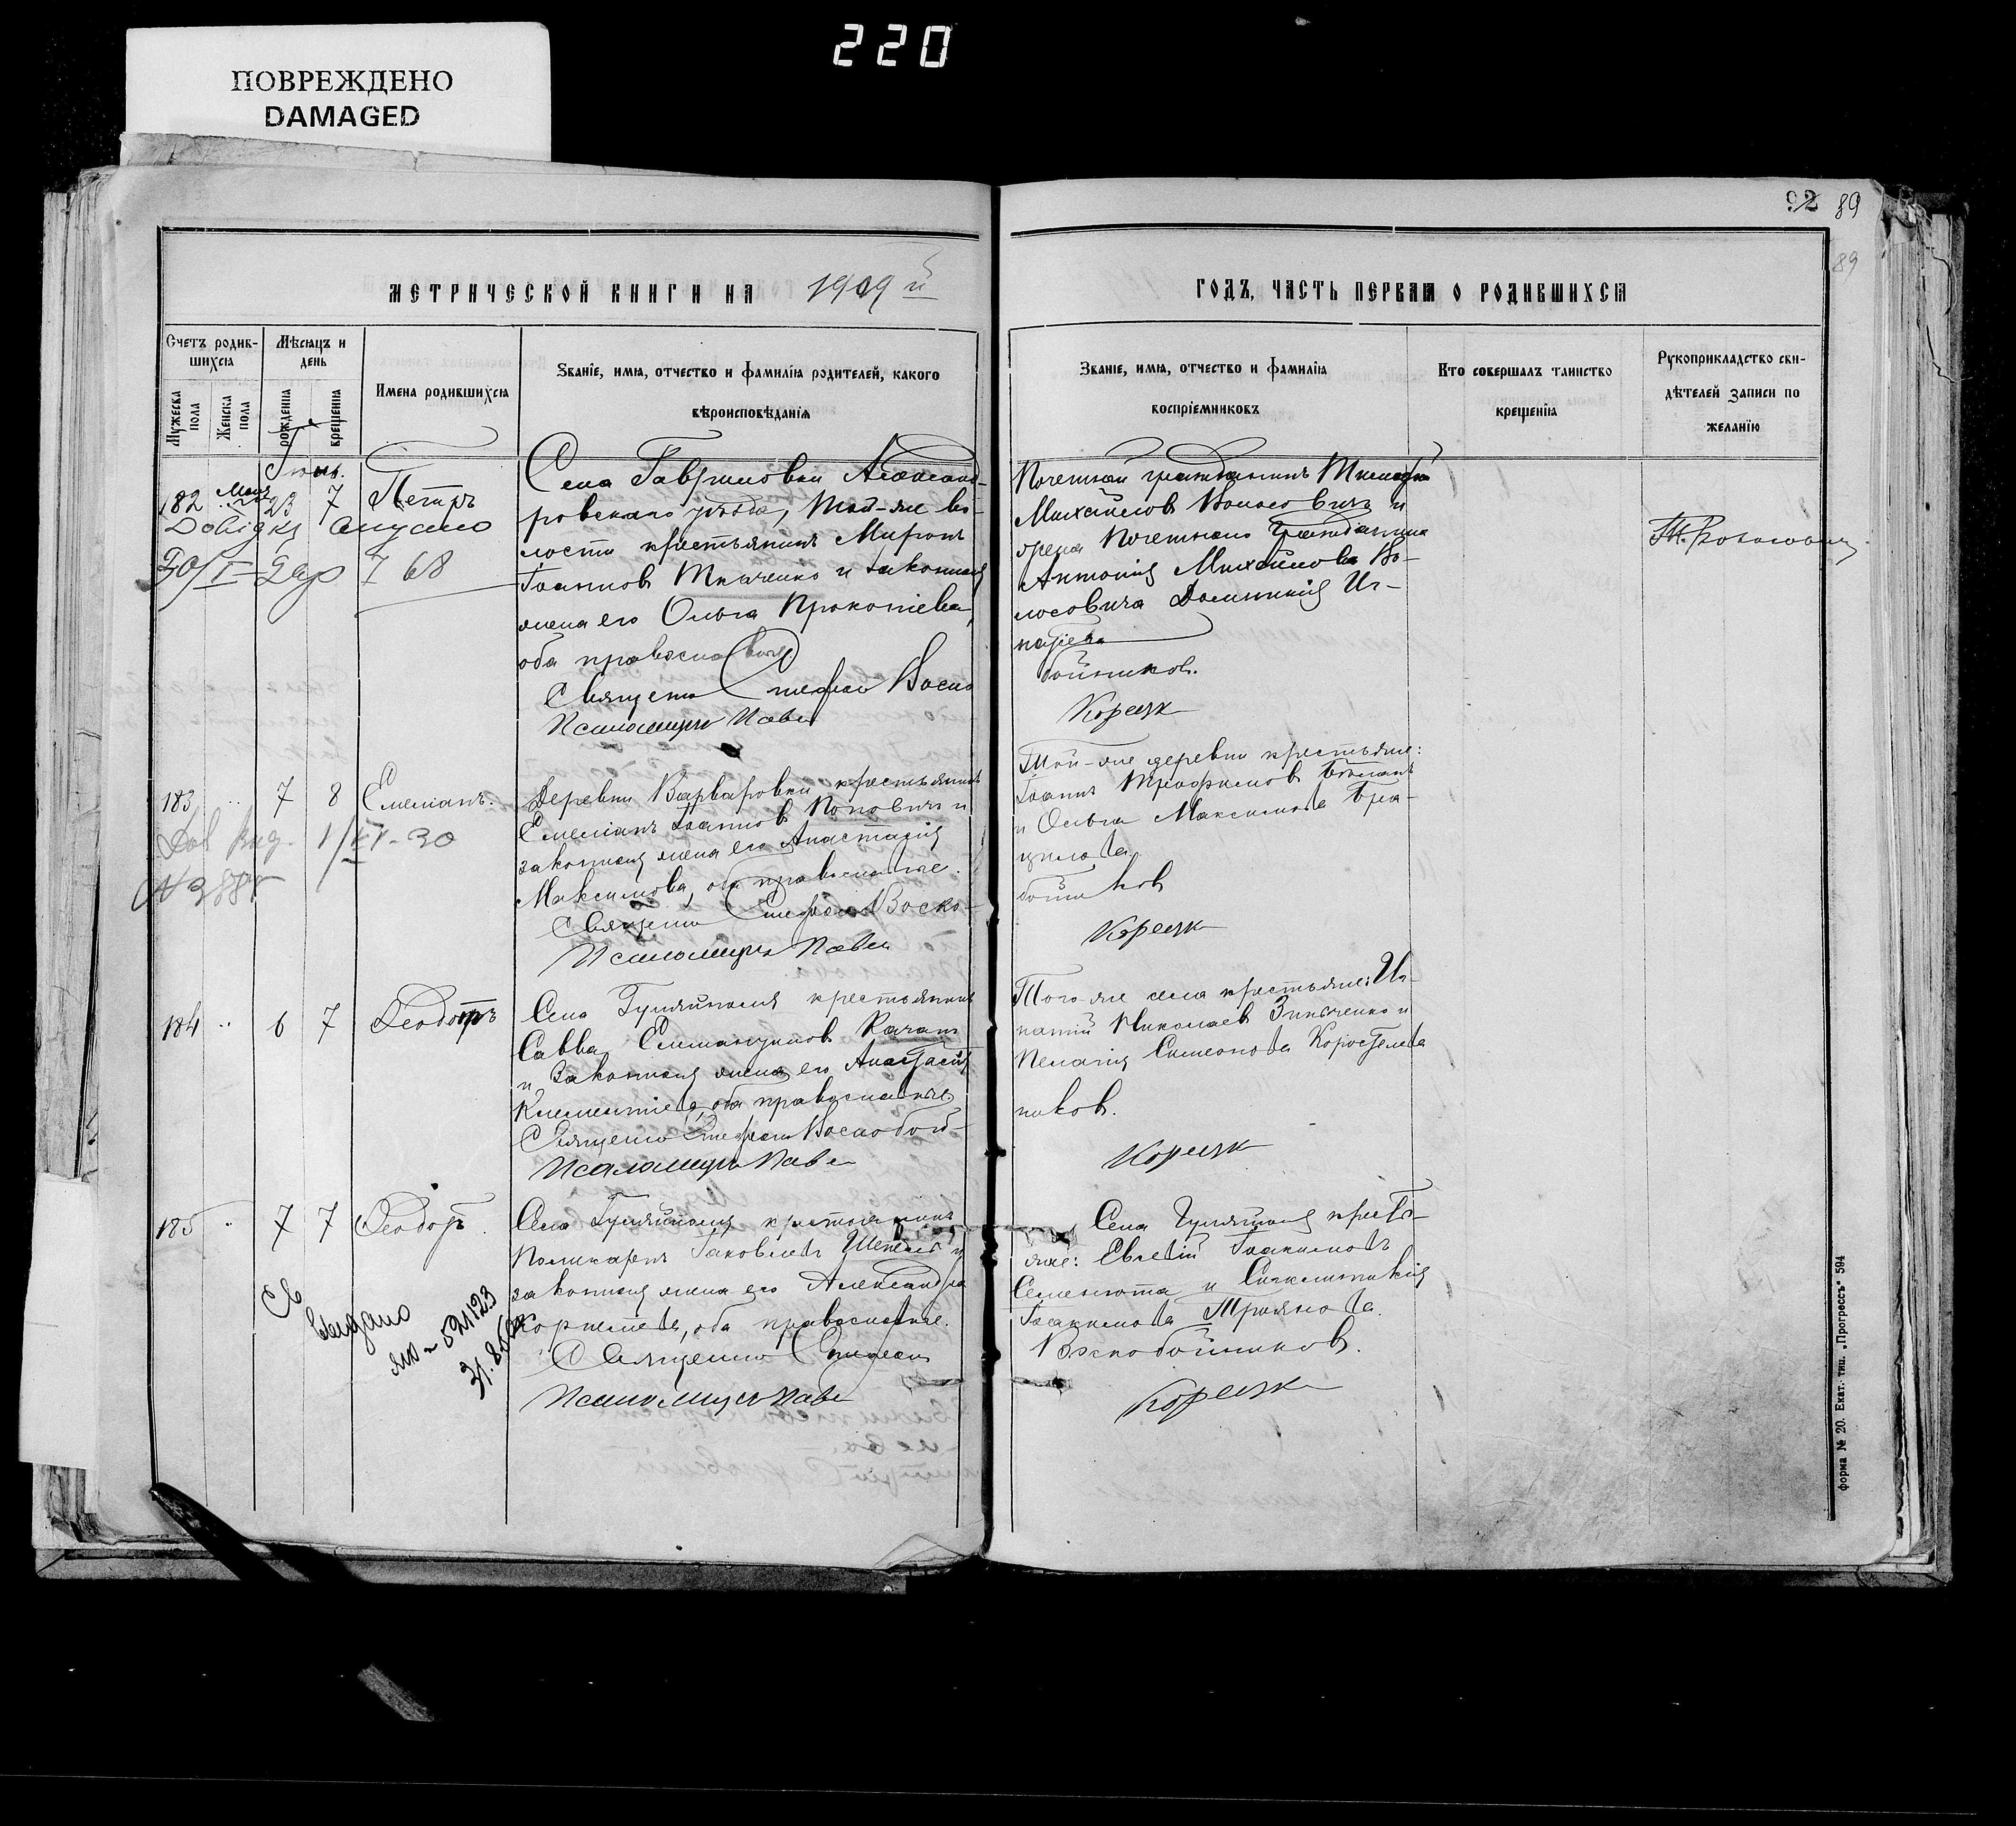 220
ПОВРЕЖДЕНО
DAMAGED
92 89
89
МЕТРИЧЕСКОЙ КНИГИ НА 1909 й
ГОДЪ, ЧАСТЬ ПЕРВАЯ О РОДИВШИХСЯ
Счетъ родив-
шихся
Мужеска пола
Женска пола
Мѣсяцъ и
день
рожденія
крещенія
Имена родившихся
Званіе, имя, отчество и фамилія родителей, какого
вѣроисповѣданія
Званіе, имя, отчество и фамилія
воспріемниковъ
Кто совершалъ таинство
крещенія
Рукоприкладство сви-
дѣтелей записи по
желанію
Іюнь.
182 Мая 23 7 Петръ
68
Села Гавриловки Александ-
ровскаго уѣзда, той-же во-
лости крестьянинъ Миронъ
Іоанновъ Ткаченко и законная
жена его Ольга Прокопіева,
оба православные.
Священ Стефан Воско
Псаломщик Павел
Почетный гражданинъ
Михайловъ и
жена Почетнаго Гражданина
Антонія Михайлова Во-
лосовича Домникія Иг-
натіева
бойников.
Корецк
183 " 7 8 Емеліанъ.
1/VI-30
Деревни Варваровки крестьянинъ
Емеліанъ Іоанновъ Поповичъ и
законная жена его Анастасія
Максимова, оба православные.
Священ Стефан Воско-
Псаломщик Павел
Той-же деревни крестьяне:
Іоаннъ Трофимовъ
и Ольга Максимова
бойников
Корецк
184 " 6 7 Ѳеодоръ
Села Гуляйполя крестьянинъ
Савва Еммануиловъ Качанъ
и законная жена его Анастасія
Климентіева, оба православные.
Священ Стефан Воскобой-
Псаломщик Павел
Того-же села крестьяне: Иг-
натій Николаевъ Зинченко и
Пелагія Симеонова Коростелева
ников.
Корецк
185 " 7 7 Ѳеодоръ.
Св
выдано
ЯЮ № 521123
Села Гуляйполя крестьянинъ
Поликарпъ Іаковлевъ и
законная жена его Александра
Корнилієва, оба православные.
Священно Стефан
Псаломщик Павел
Села Гуляйполя кресть-
яне: Евгеній Іоакимовъ
Семенюта и Синклитикія
Іоакимова Троянова.
Воскобойников.
Корецк
форма № 20. Екат. тип. „Прогрессъ“ 594